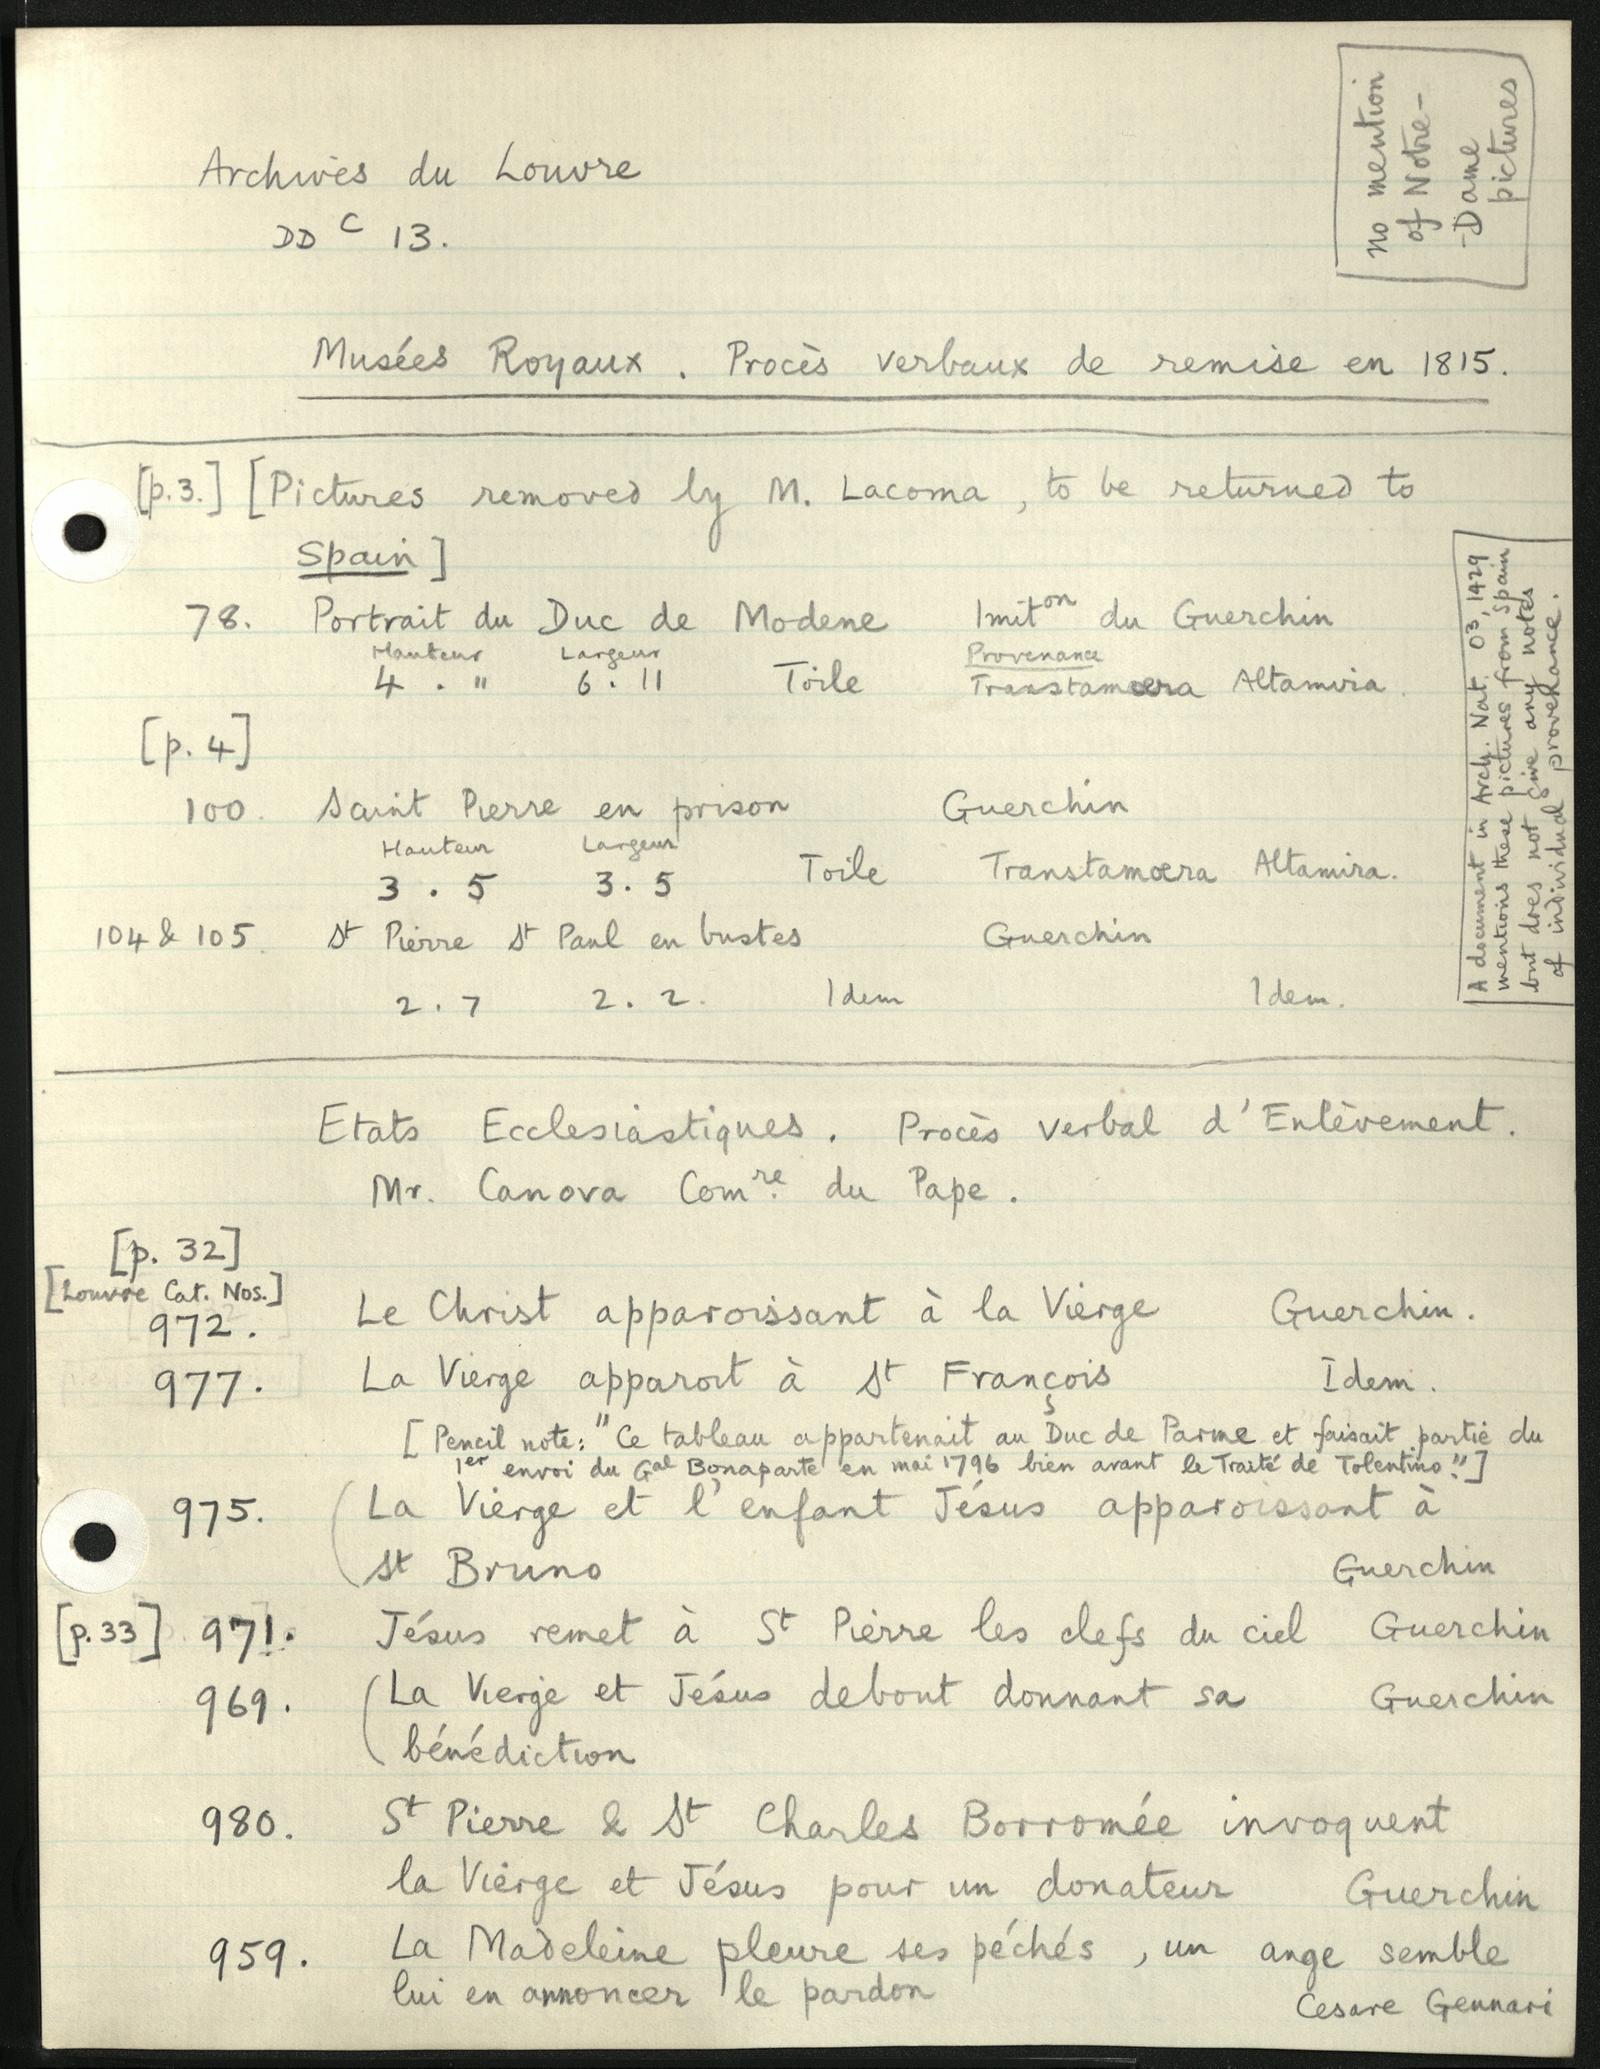 no mention
of Notre-
-Dame
pictures
Archives du Louvre
DD C 13.
Musées Royaux . Procès verbaux de remise en 1815.
[p.3.] [Pictures removed by M. Lacoma , to be returned to
Spain]
78. Portrait du Duc de Modene Imiton du Guerchin
Hauteur Largeur Provenance
4 . " 6 . 11 Toile Transtamoera Altamira .
[p. 4]
100. Saint Pierre en prison Guerchin
Hauteur Largeur
3 . 5 3 . 5 Toile Transtamoera Altamira.
104 & 105. St Pierre St Paul en bustes Guerchin
2 . 7 2 . 2. Idem Idem.
A document in Arch. Nat. O3, 1429
mentions these pictures from Spain
but does not give any notes
of individual provenance.
Etats Ecclesiastiques . Procès verbal d'Enlèvement .
Mr. Canova Comre. du Pape .
[p. 32]
[Louvre Cat. Nos.]
972. Le Christ apparoissant à la Vierge Guerchin .
977. La Vierge apparoit à St François Idem .
[Pencil note: "Ce tableau appartenait au Duc de Parme et faisait partie du
1er envoi du Gal Bonaparte en mai 1796 bien avant le Traité de Tolentino."]
975. (La Vierge et l'enfant Jésus apparoissant à
St Bruno Guerchin
[p.33] 971. Jésus remet à St Pierre les clefs du ciel Guerchin
969. (La Vierge et Jésus debout donnant sa Guerchin
bénédiction
980. St Pierre & St Charles Borromée invoquent
la Vierge et Jésus pour un donateur Guerchin
959. La Madeleine pleure ses péchés , un ange semble
lui en annoncer le pardon Cesare Gennari